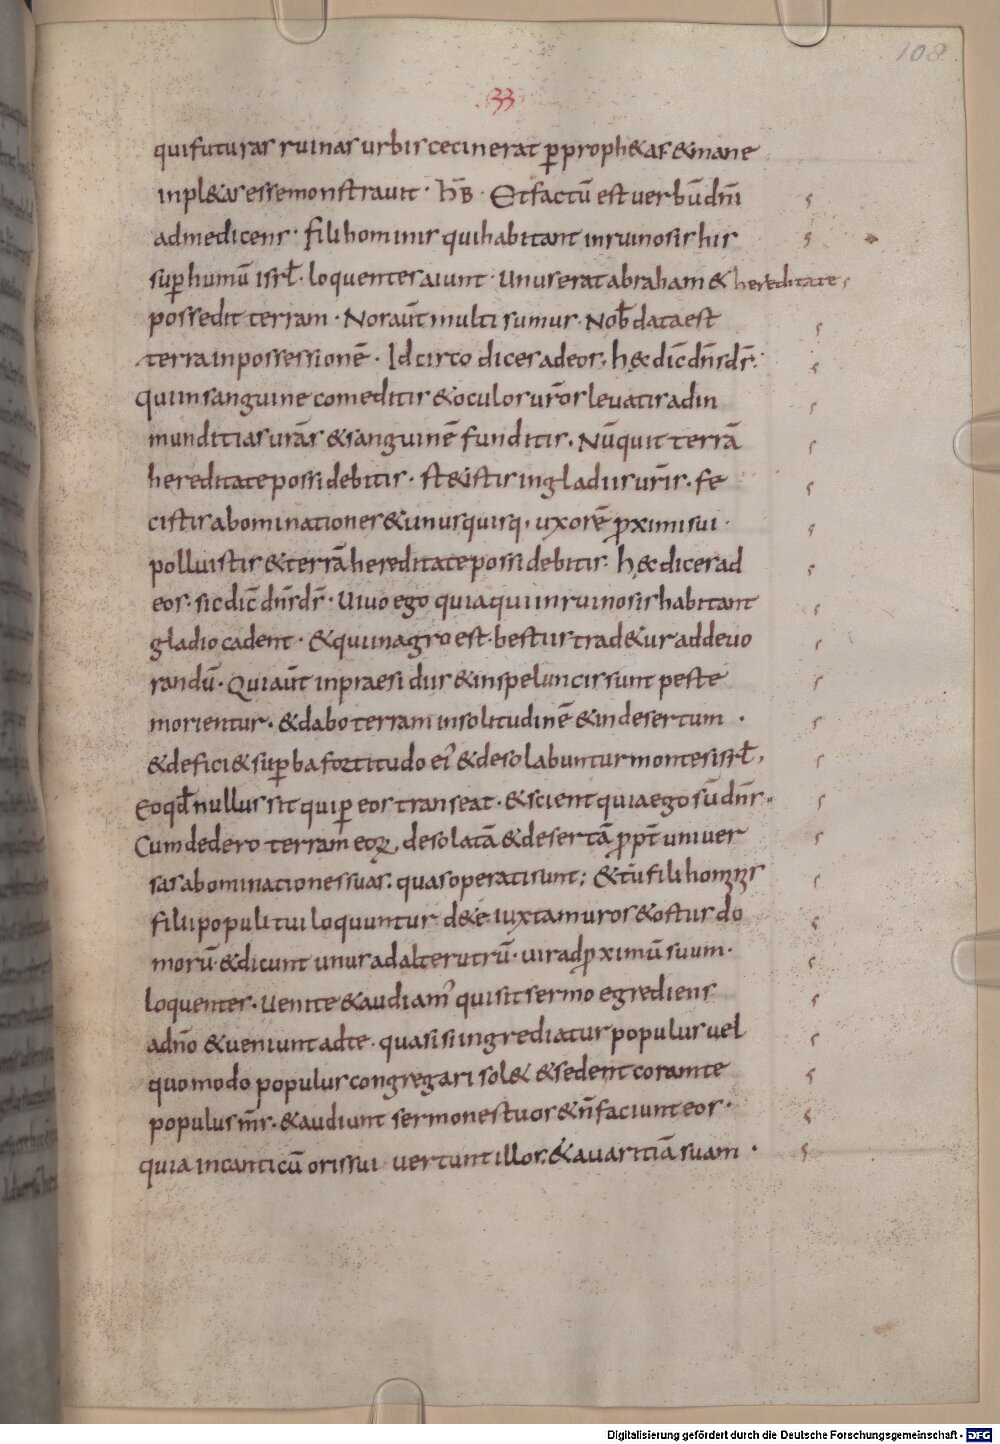 108
.33.
qui futuras ruinas urbis cecinerat ꝑ proph&as & inane
in pl&as esse monstravit · hB̄ · Et factū est verbū dn̄i
ad me dicens · fili hominis qui habitant in ruinosis his
suꝑ humū isrł · loquentes aiunt · Unus erat abraham & hereditate
possedit terram · Nos aūt multi sumus · Nob̄ data est
terra in possessionē · Idcirco dices ad eos, hęc dic̄ dn̄s ds̄ ·
qui in sanguine comeditis & oculos vr̄os levatis ad in
munditias vrās & sanguinē funditis · Nūquit terrā
hereditate possidebitis · st&istis in gladiis vr̄is · fe
cistis abominationes & unusquisq, uxorē ꝓximi sui ·
polluistis & terrā hereditate possidebitis · hęc dices ad
eos · sic dic̄ dn̄s ds̄ · Uiuo ego quia qui in ruinosis habitant
gladio cadent · & qui in agro est bestiis trad&ur ad deuo
randū · Qui aūt in praesidiis & in speluncis sunt peste
morientur · & dabo terram in solitudinē & in desertum ·
& defici& suꝑba fortitudo ei' & desolabuntur montes isrł,
Eo qd̄ nullus sit qui ꝑ eos transeat · & scient quia ego sū dn̄s ·
Cum dedero terram eoꝝ, desolatā & desertā ꝓpt̄ univer
sas abominationes suas · quas operati sunt; & tu fili hominis
filii populi tui loquuntur de te iuxta muros & ostiis do
morū · & dicunt unus ad alterutrū · vir ad ꝓximū suum ·
loquentes · Uenite & audiam' qui sit sermo egrediens
a dn̄o & veniunt ad te · quasi si ingrediatur populus vel
quomodo populus congregari sol& & sedent coram te
populus m̄s · & audiunt sermones tuos & n̄ faciunt eos ·
quia in canticū oris sui vertunt illos, & avaritiā suam ·
Digitalisierung gefördert durch die Deutsche Forschungsgemeinschaft - DFG